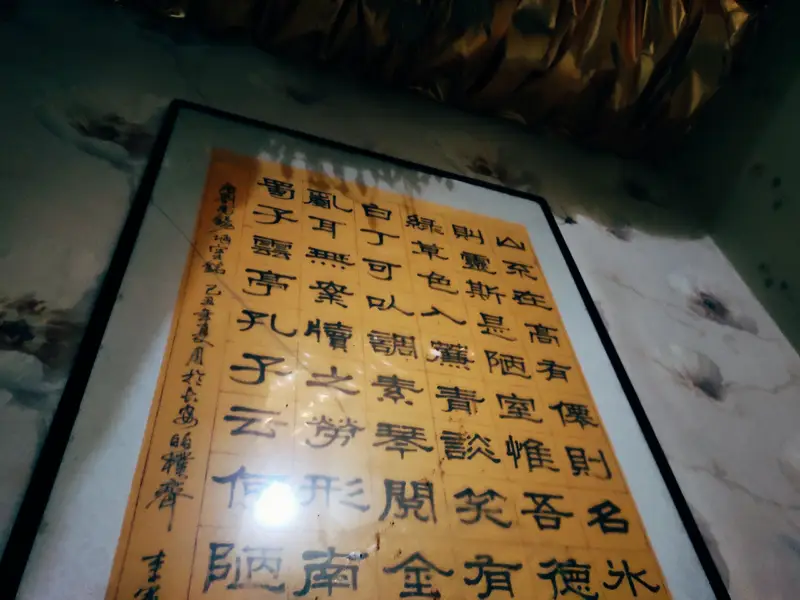 山不在高有僊則名水
則靈斯是陋室惟吾德
綠草色入簾青談笑有
白丁可以調素琴閱金
亂耳無案牘之勞形南
蜀子雲亭孔子云何陋
唐劉禹錫陋室銘 乙丑年夏月於長安 李